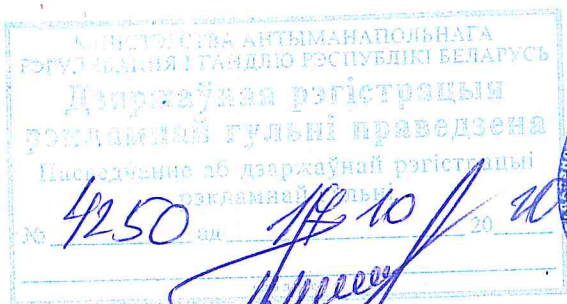 МІНІСТЭРСТВА АНТЫМАНАПОЛЬНАГА
РЭГУЛЯВАННЯ І ГАНДЛЮ РЭСПУБЛІКІ БЕЛАРУСЬ
Дзяржаўная рэгістрацыя
рэкламнай гульні праведзена
Пасведчанне аб дзяржаўнай рэгістрацыі
рэкламнай гульні
№ 4250 ад 10 20 20